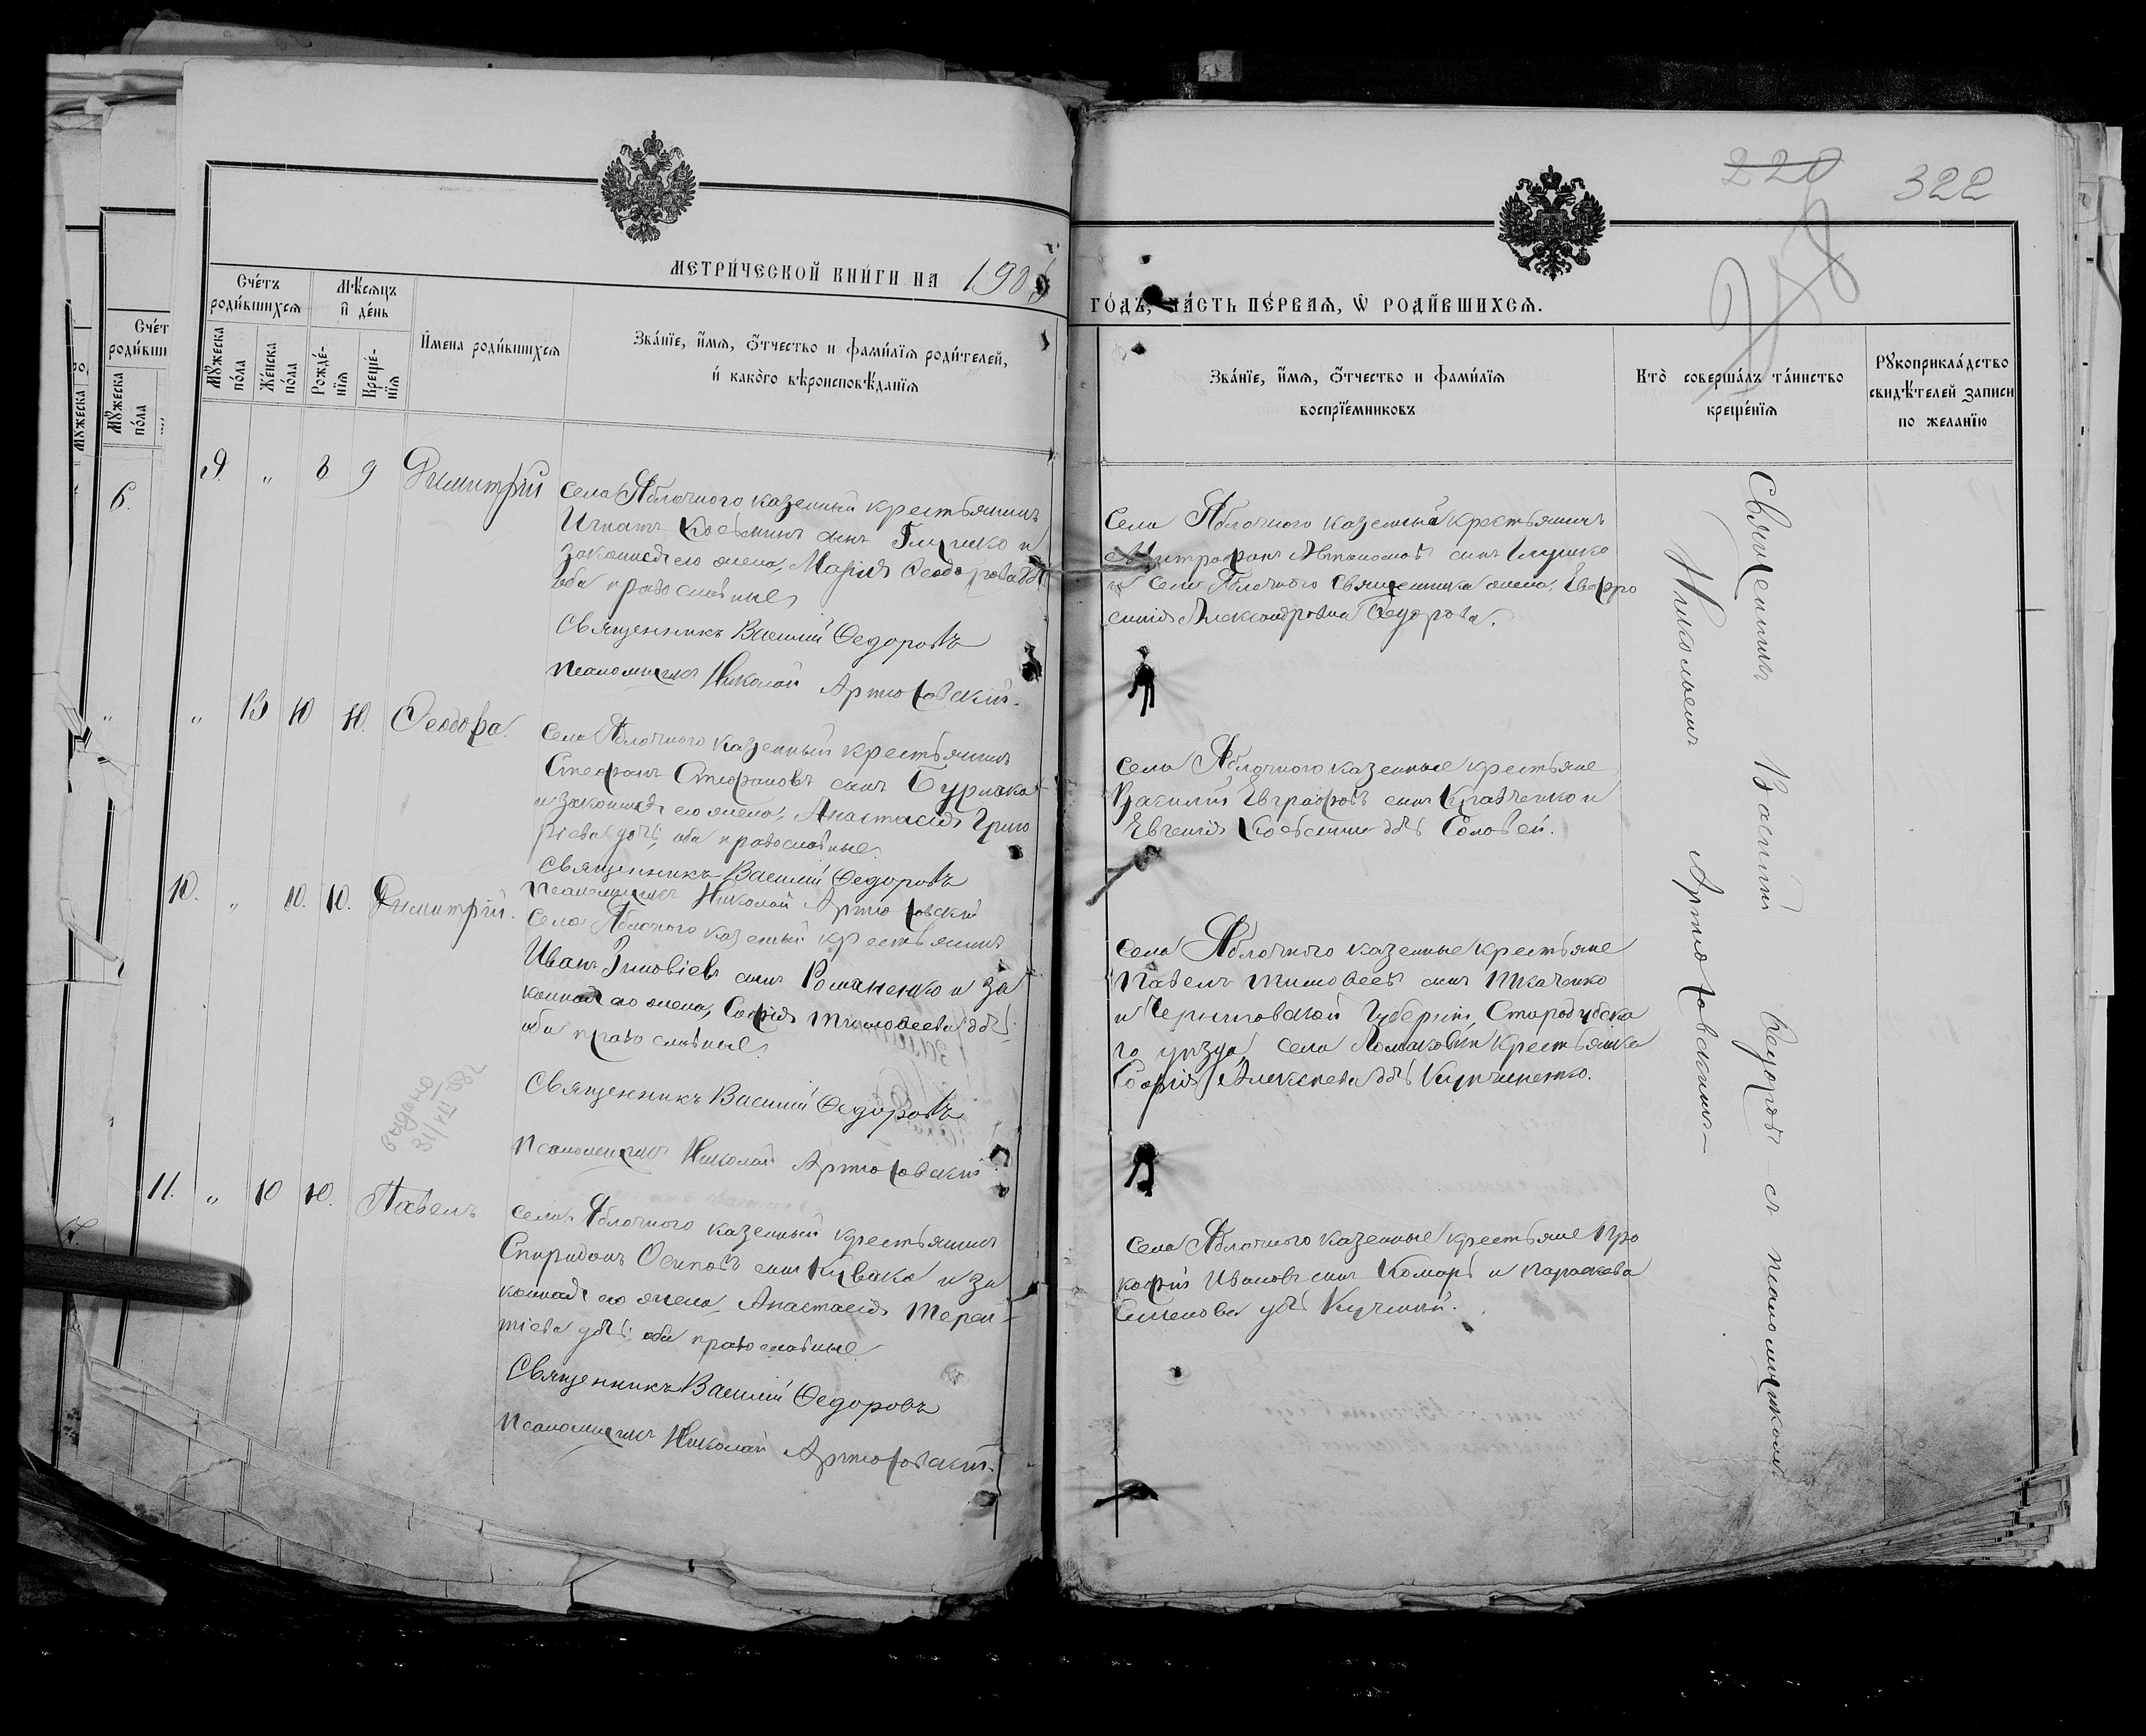 220
322
МЕТРИ́ЧЕСКОЙ КНИ́ГИ НА 190
ГО́ДЪ, ЧА́СТЬ ПЕ́РВАѦ, Ѡ РОДИ́ВШИХСѦ.
Сче́тъ роди́вшихсѧ
Мѣ́сѧцъ и де́нь
Мꙋ́жеска по́ла
Же́нска по́ла
Рожде́нїѧ
Креще́нїѧ
Имена родившихсѧ
Зва́нїе, и́мѧ, ѻ҆́тчество и фами́лїѧ роди́телей,
и како́го вѣроисповѣ́данїѧ
Зва́нїе, и́мѧ, ѻ҆́тчество и фами́лїѧ
воспрїе́мниковъ
Кто̀ соверша́лъ та́инство
креще́нїѧ
Рꙋкоприкла́дство
свидѣ́телей записи
по желанїю
9. " 8 9 Димитрій
Села Яблочного казенный крестьянинъ
Игнатъ Косьминъ сынъ Глушко и
законная его жена, Марія Ѳеодорова
оба православные
Священникъ Василій Ѳедоровъ
Псаломщикъ Николай Артюховскій.
Села Яблочного казенный крестьянинъ
Митрофанъ Автономовъ сынъ Глушко
и села Яблочного Священника жена, Евфро
синія Александровна Ѳедорова.
" 13 10 10. Ѳеодора.
Села Яблочного казенный крестьянинъ
Стефанъ Стефановъ сынъ Бурлака
и законная его жена, Анастасія Григо
ріева дочь, оба православные.
Священникъ Василій Ѳедоровъ
Псаломщикъ Николай Артюховскій
Села Яблочного казенные крестьяне
Василій Евграфовъ сынъ Кравченко и
Евгенія Косьмина Соловей.
10. " 10. 10. Димитрій.
Села Яблочного казенный крестьянинъ
Иванъ Зиновіевъ сынъ Романенко и за
конная его жена, Софія Тимоѳеева
оба православные.
Священникъ Василій Ѳедоровъ
Псаломщикъ Николай Артюховскій
Села Яблочного казенные крестьяне
Павелъ Тимоѳеевъ сынъ Ткаченко
и Черниговской Губерніи, Стародубска
го уѣзда, села крестьянка
Софія Алексѣева
выдано
11. " 10 10. Павелъ
Села Яблочного казенный крестьянинъ
Спиридонъ Осиповъ сынъ и за
конная его жена, Анастасія Терен-
тіева дочь, оба православные
Священникъ Василій Ѳедоровъ
Псаломщикъ Николай Артюховскій.
Села Яблочного казенные крестьяне Про
кофій Ивановъ сынъ Комарь и Параскева
Семенова
Священникъ Василій Ѳедоровъ съ псаломщикомъ
Николаемъ Артюховскимъ